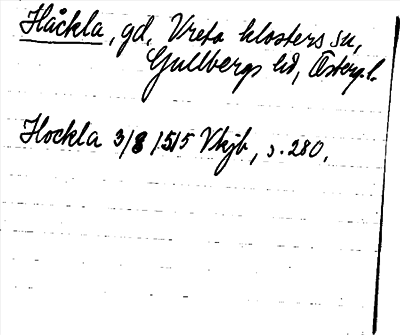 Håckla, gd, Vreta klosters sn,
Gullbergs hd, Österg.l.
Hockla 3/8 1515 Vkjb, s. 280.